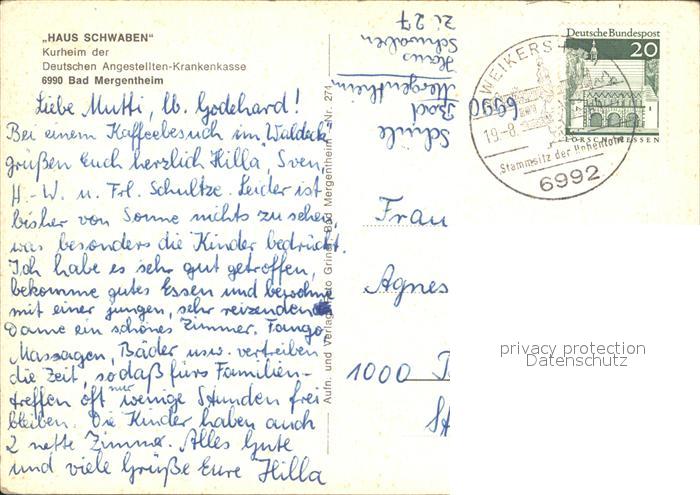 „HAUS SCHWABEN"
Kurheim der
Deutschen Angestellten-Krankenkasse
6990 Bad Mergentheim
Liebe Mutti, lb. Godehard!
Bei einem Kaffeebesuch im Waldeck
grüßen Euch herzlich Hilla, Sven,
H.-W. u. Frl. Schultze. Leider ist
bisher von Sonne nichts zu sehen,
was besonders die Kinder bedrückt.
Ich habe es sehr gut getroffen,
bekomme gutes Essen und bewohne
mit einer jungen, sehr reizenden
Dame ein schönes Zimmer. Fango,
Massagen, Bäder usw. vertreiben
die Zeit, sodaß fürs Familien-
treffen oft nur wenige Stunden frei
bleiben. Die Kinder haben auch
2 nette Zimmer. Alles Gute
und viele Grüße Eure Hilla
Aufn. und Verlag: Foto Bad Mergentheim Nr. 274
Schüle
6990 Bad
Mergentheim
Haus
Schwaben
Zi 27
Deutsche Bundespost
20
LORSCH HESSEN
WEIKERS
19.-8.
Stammsitz der Hohenlohe
6992
Frau
Agnes
1000
privacy protection
Datenschutz